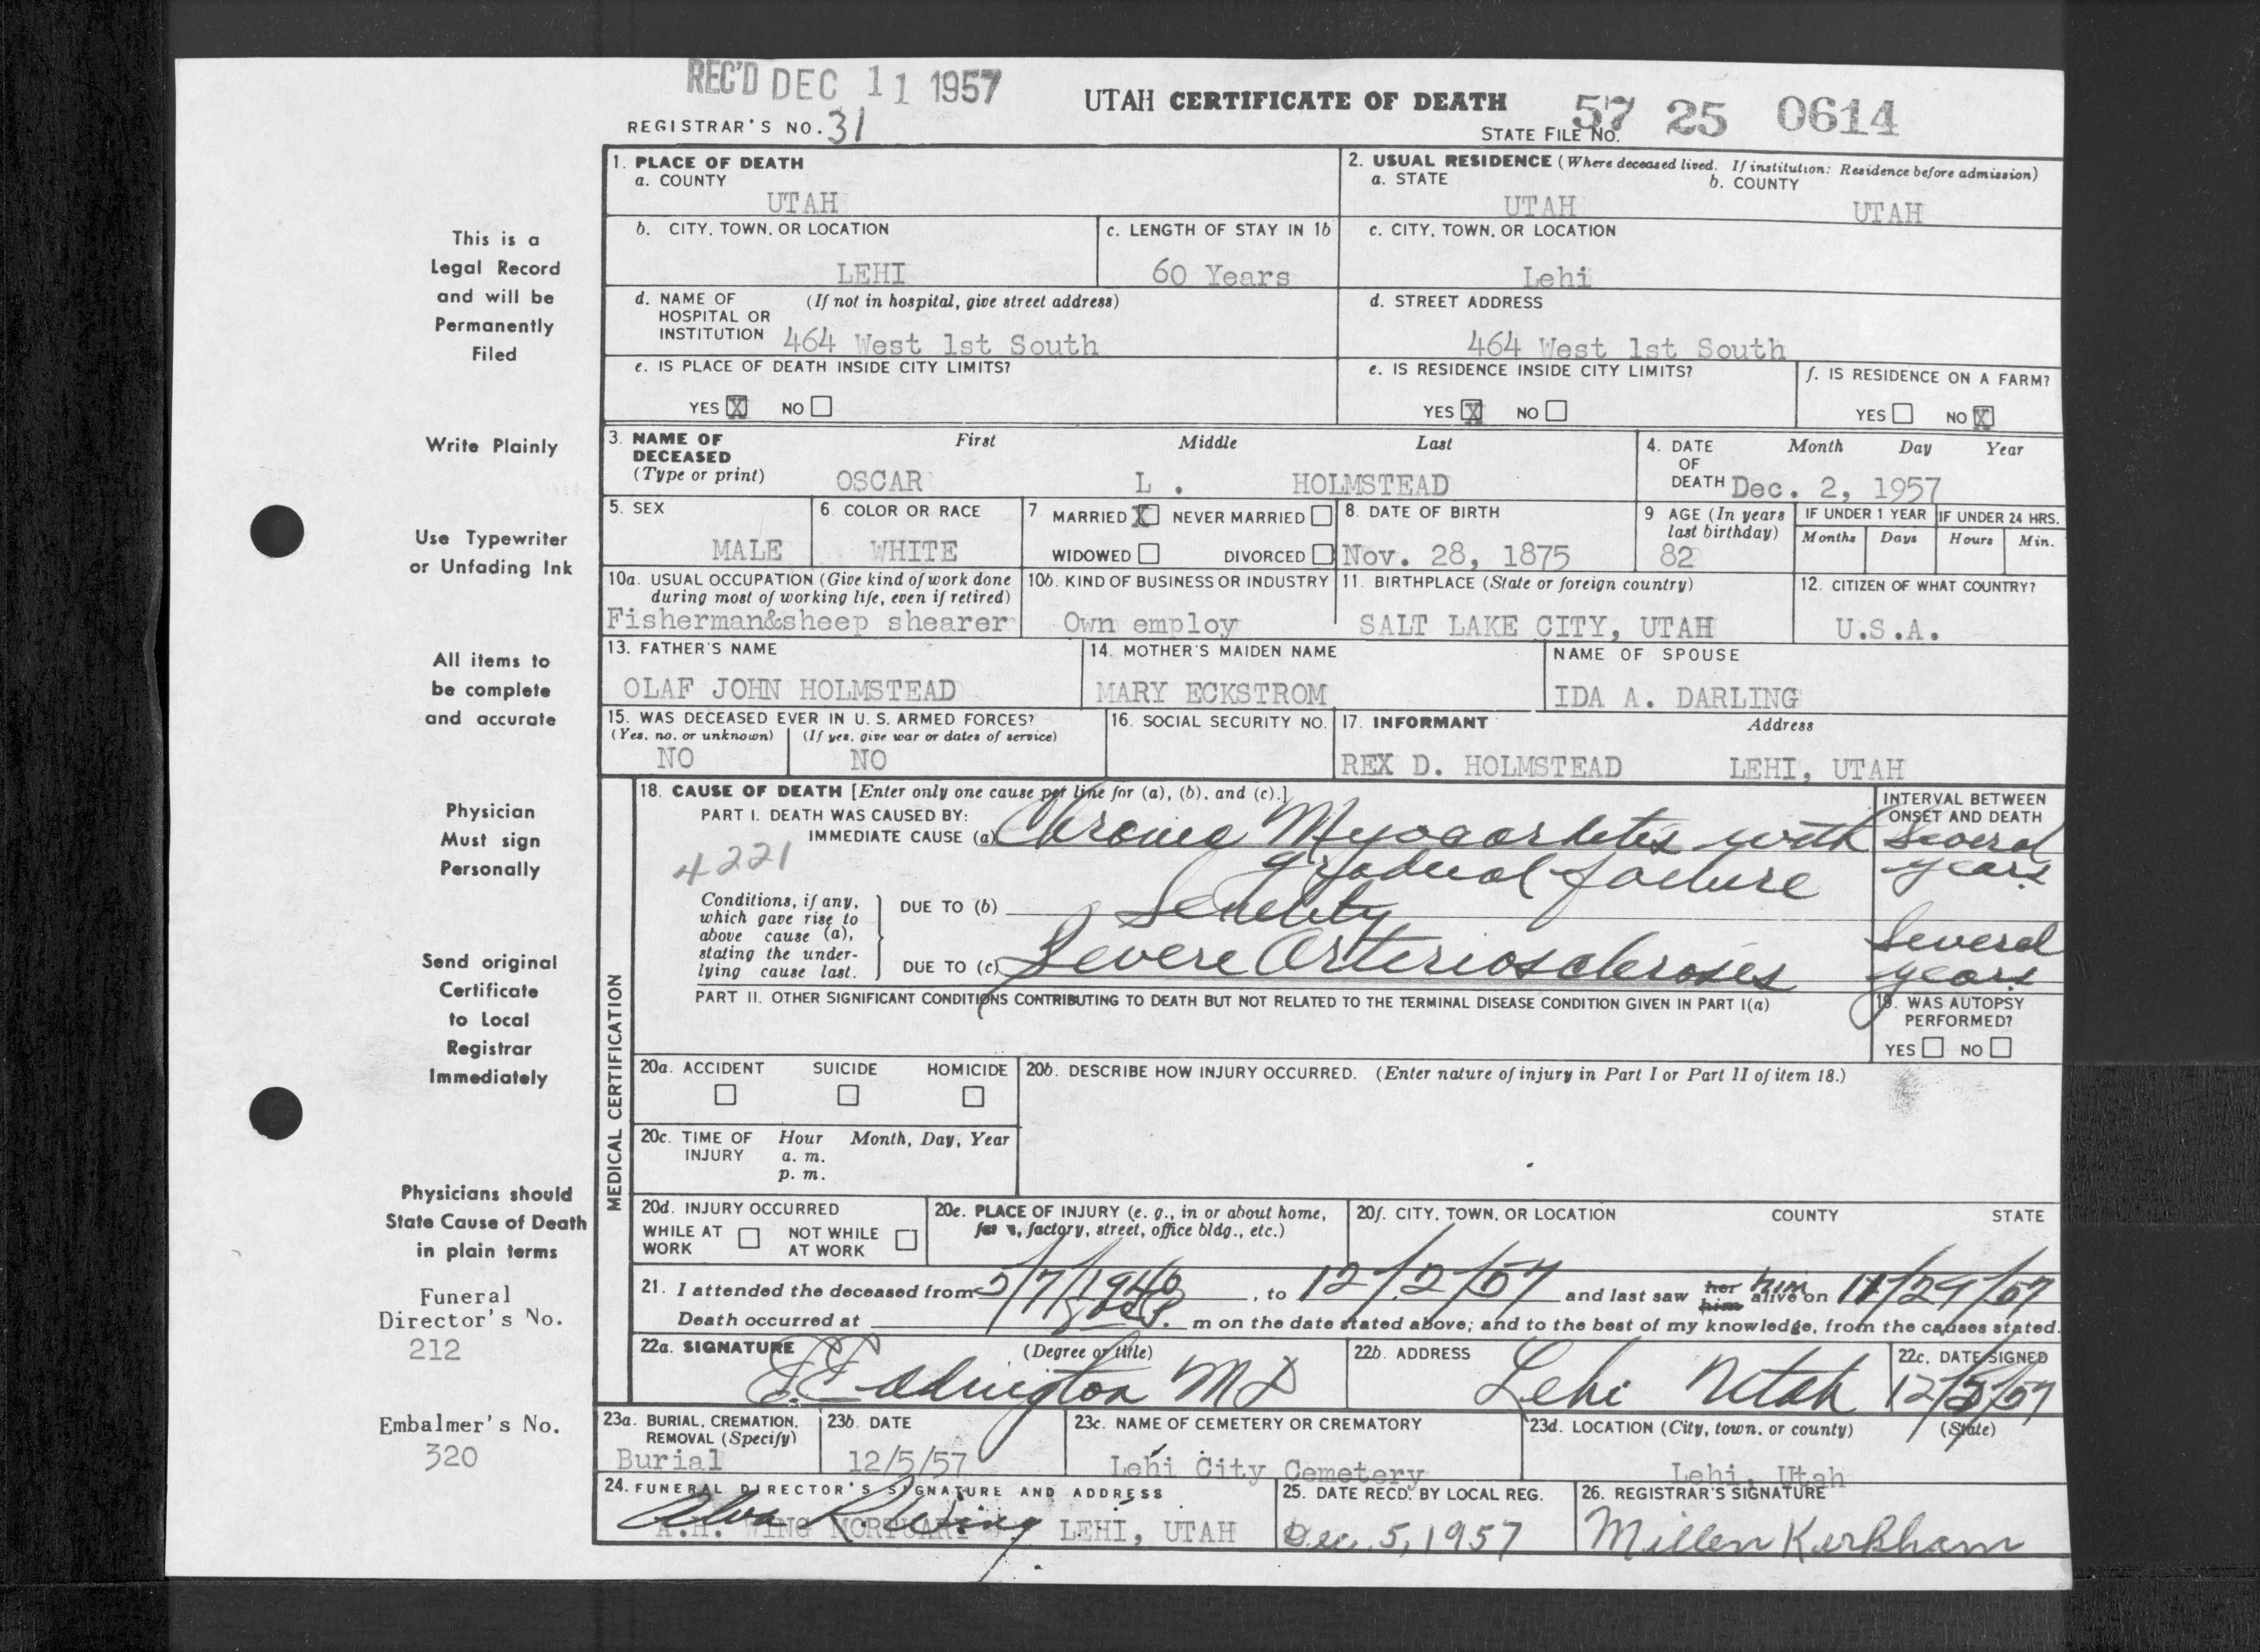 REC'D DEC 11 1957
UTAH CERTIFICATE OF DEATH
57 25 0614
REGISTRAR'S NO. 31
STATE FILE NO.
1. PLACE OF DEATH
a. COUNTY
UTAH
2. USUAL RESIDENCE (Where deceased lived. If institution: Residence before admission)
a. STATE
b. COUNTY
UTAH
UTAH
b. CITY, TOWN, OR LOCATION
LEHI
c. LENGTH OF STAY IN 1b
60 Years
c. CITY, TOWN, OR LOCATION
Lehi
d. NAME OF (If not in hospital, give street address)
HOSPITAL OR
INSTITUTION 464 West 1st South
d. STREET ADDRESS
464 West 1st South
e. IS PLACE OF DEATH INSIDE CITY LIMITS?
YES X NO
e. IS RESIDENCE INSIDE CITY LIMITS?
YES X NO
f. IS RESIDENCE ON A FARM?
YES NO X
3. NAME OF DECEASED
(Type or print)
First Middle Last
OSCAR L. HOLMSTEAD
4. DATE OF DEATH
Month Day Year
Dec. 2, 1957
5. SEX
MALE
6. COLOR OR RACE
WHITE
7 MARRIED X NEVER MARRIED
WIDOWED DIVORCED
8. DATE OF BIRTH
Nov. 28, 1875
9 AGE (In years
last birthday)
82
IF UNDER 1 YEAR
Months Days
IF UNDER 24 HRS.
Hours Min.
10a. USUAL OCCUPATION (Give kind of work done
during most of working life, even if retired)
Fisherman&sheep shearer
10b. KIND OF BUSINESS OR INDUSTRY
Own employ
11. BIRTHPLACE (State or foreign country)
SALT LAKE CITY, UTAH
12. CITIZEN OF WHAT COUNTRY?
U.S.A.
13. FATHER'S NAME
OLAF JOHN HOLMSTEAD
14. MOTHER'S MAIDEN NAME
MARY ECKSTROM
NAME OF SPOUSE
IDA A. DARLING
15. WAS DECEASED EVER IN U. S. ARMED FORCES?
(Yes, no, or unknown) (If yes, give war or dates of service)
NO NO
16. SOCIAL SECURITY NO.
17. INFORMANT Address
REX D. HOLMSTEAD LEHI, UTAH
MEDICAL CERTIFICATION
18. CAUSE OF DEATH [Enter only one cause per line for (a), (b), and (c).]
PART I. DEATH WAS CAUSED BY:
IMMEDIATE CAUSE (a) Chronic Myocarditis with
gradual failure
4221
INTERVAL BETWEEN
ONSET AND DEATH
Several
years
Conditions, if any,
which gave rise to
above cause (a),
stating the under-
lying cause last.
DUE TO (b) Senility
DUE TO (c) Severe Arteriosclerosis
Several
years
PART II. OTHER SIGNIFICANT CONDITIONS CONTRIBUTING TO DEATH BUT NOT RELATED TO THE TERMINAL DISEASE CONDITION GIVEN IN PART I(a)
19. WAS AUTOPSY
PERFORMED?
YES NO
20a. ACCIDENT SUICIDE HOMICIDE
20b. DESCRIBE HOW INJURY OCCURRED. (Enter nature of injury in Part I or Part II of item 18.)
20c. TIME OF INJURY
Hour Month, Day, Year
a. m.
p. m.
20d. INJURY OCCURRED
WHILE AT WORK NOT WHILE AT WORK
20e. PLACE OF INJURY (e. g., in or about home,
farm, factory, street, office bldg., etc.)
20f. CITY, TOWN, OR LOCATION COUNTY STATE
21. I attended the deceased from 5/7/1948, to 12/2/57 and last saw her him him alive on 11/29/57
Death occurred at m on the date stated above; and to the best of my knowledge, from the causes stated.
22a. SIGNATURE (Degree or title)
Eddington MD
22b. ADDRESS
Lehi Utah
22c. DATE SIGNED
23a. BURIAL, CREMATION,
REMOVAL (Specify)
Burial
23b. DATE
12/5/57
23c. NAME OF CEMETERY OR CREMATORY
Lehi City Cemetery
23d. LOCATION (City, town, or county) (State)
Lehi, Utah
24. FUNERAL DIRECTOR'S SIGNATURE AND ADDRESS
Alva R. Wing
A.H. WING MORTUARY LEHI, UTAH
25. DATE RECD. BY LOCAL REG.
Dec. 5, 1957
26. REGISTRAR'S SIGNATURE
Millen Kirkham
This is a
Legal Record
and will be
Permanently
Filed
Write Plainly
Use Typewriter
or Unfading Ink
All items to
be complete
and accurate
Physician
Must sign
Personally
Send original
Certificate
to Local
Registrar
Immediately
Physicians should
State Cause of Death
in plain terms
Funeral
Director's No.
212
Embalmer's No.
320